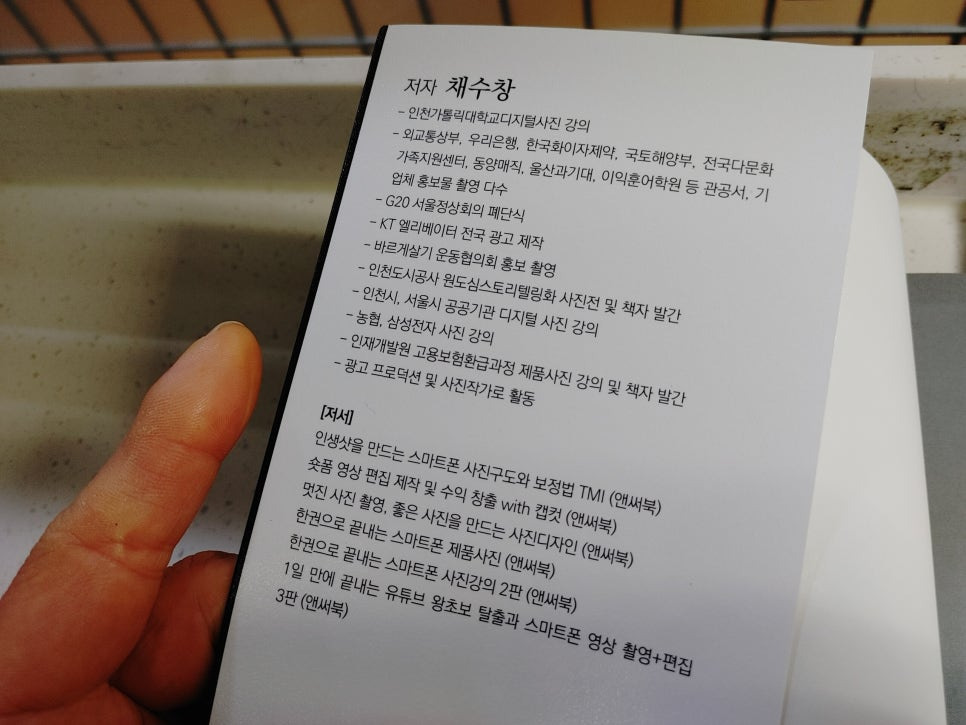 저자 채수창
- 인천가톨릭대학교디지털사진 강의
- 외교통상부, 우리은행, 한국화이자제약, 국토해양부, 전국다문화
가족지원센터, 동양매직, 울산과기대, 이익훈어학원 등 관공서, 기
업체 홍보물 촬영 다수
- G20 서울정상회의 폐단식
- KT 엘리베이터 전국 광고 제작
- 바르게살기 운동협의회 홍보 촬영
- 인천도시공사 원도심스토리텔링화 사진전 및 책자 발간
- 인천시, 서울시 공공기관 디지털 사진 강의
- 농협, 삼성전자 사진 강의
- 인재개발원 고용보험환급과정 제품사진 강의 및 책자 발간
- 광고 프로덕션 및 사진작가로 활동
[저서]
인생샷을 만드는 스마트폰 사진구도와 보정법 TMI (앤써북)
숏폼 영상 편집 제작 및 수익 창출 with 캡컷 (앤써북)
멋진 사진 촬영, 좋은 사진을 만드는 사진디자인 (앤써북)
한권으로 끝내는 스마트폰 제품사진 (앤써북)
한권으로 끝내는 스마트폰 사진강의 2판 (앤써북)
1일 만에 끝내는 유튜브 왕초보 탈출과 스마트폰 영상 촬영+편집
3판 (앤써북)